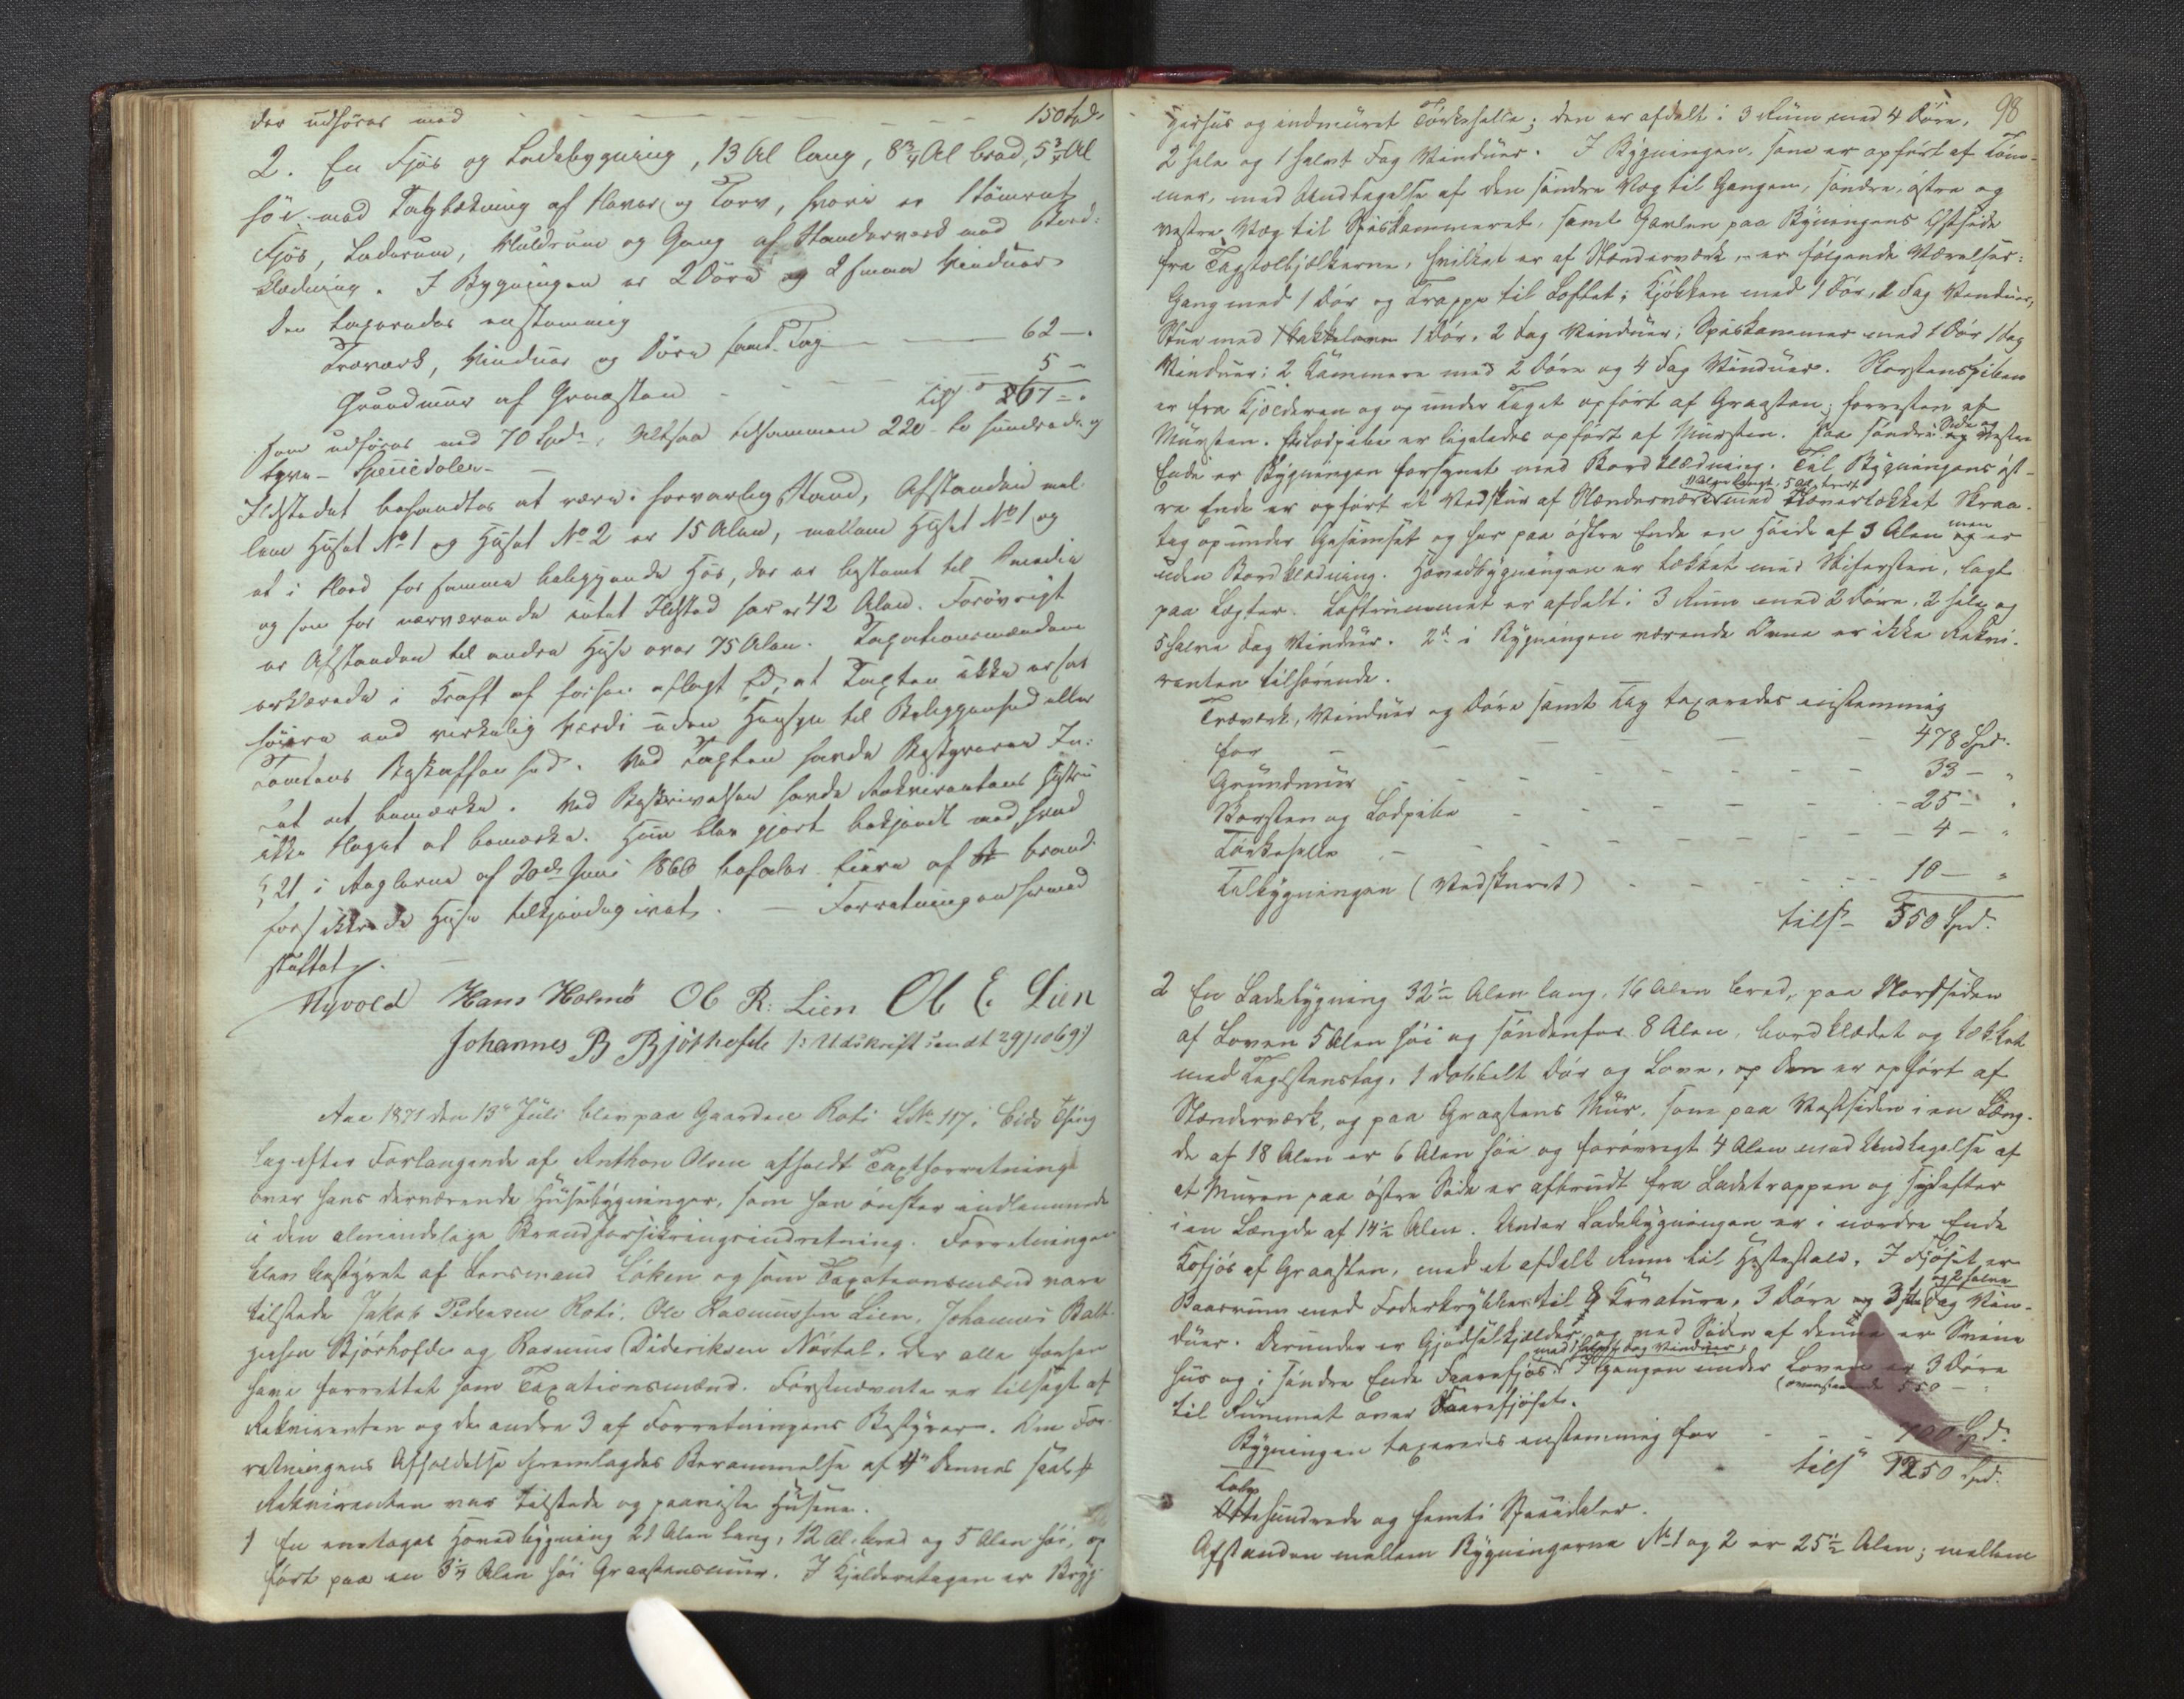 der udföres med - - - - - - - 150 Spd.
2. En Fjös og Ladebygning, 13 Al lang, 8 3/4 Al bred, 5 3/4 Al
höi med Tagtækning af Næver og Torv, hvori er 1 tömret
Fjös, Laderum, og Gang af Standerværk med Bord:
klædning. I Bygningen er 2 Döre og 2 smaa Vinduer
Den taxeredes enstemmig
Træværk, Vinduer og Döre samt Tag — 62 —.
Grundmur af Graasten - 5 —
Tils. 67 = .
som udföres med 70 Spd., Altsaa tilsammen 220 - to hundrede og
tyve - Speciedaler -
Ildstedet befandtes at være i forsvarlig Stand, Afstanden mel-
lem Huset No 1 og Huset No 2 er 15 Alen, mellem Huset No 1 og
et i Nord for samme beliggende Hus, der er bestemt til Smedie
og som for nærværende intet Ildsted har er 42 Alen. Forövrigt
er Afstanden til andre Huse over 75 Alen. Taxationsmændene
erklærede i Kraft af forhen aflagt Ed, at Taxten ikke er sat
höiere end virkelig Værdi uden Hensyn til Beliggenhed eller
Tomtens Beskaffenhed. Ved Taxten havde Bestyreren In-
tet at bemærke. Ved Beskrivelsen havde Rekvirentens Hustru
ikke Noget at bemærke. Hun blev gjort bekjendt med hvad
§ 21 i Reglerne af 20de Juni 1860 befaler Eiere af brand-
forsikrede Huse tilkjendegivet. — Forretningen hermed
sluttet.
Myvold Hans Holmö Ol R. Lien Ol E. Lien
Johannes B Bjöthofde /: Udskrift sendt 29/10 69 :/
Aar 1871 den 13de Juli blev paa Gaarden Roti LNo 117 i Eids Thing
lag efter Forlangende af Anthon Olsen afholdt Taxtforretning
over hans derværende Husebygninger, som han önsker indlemmede
i den almindelige Brandforsikringsindretning. Forretningen
blev bestyret af Lensmand Löken og som Taxationsmænd vare
tilstede Jakob Pedersen Roti, Ole Rasmussen Lien, Johannes Balt-
zersen Bjöthofde og Rasmus Dideriksen Nöstal, der alle forhen
have forrettet som Taxationsmænd. Förstnævnte er tilsagt af
Rekvirenten og de andre 3 af Forretningens Bestyrer. Om For-
retningens Afholdelse fremlagdes Berammelse af 4de dennes
Rekvirenten var tilstede og paaviste Husene.
1 En enetages Hovedbygning 21 Alen lang, 12 Al. bred og 5 Alen höi, op
fört paa en 3 1/4 Alen höi Graastensmur. I Kjelderetagen er Bryg-
98
gerhus og indmuret Törkehelle; den er afdelt i 3 Rum med 4 Döre,
2 hele og 1 halvt Fag Vinduer. I Bygningen, som er opfört af Töm-
mer, med Undtagelse af den söndre Væg til Gangen, söndre, östre og
vestre Væg til Spiskammeret, samt Gavlen paa Bygningens Östside
fra Tagstolbjelkerne, hvilket er af Stænderværk, er fölgende Værelser:
Gang med 1 Dör og Trappe til Loftet; Kjökken med 1 Dör, 2 Fag Vinduer,
Stue med 1 Kakkelovn 1 Dör, 2 Fag Vinduer; Spiskammer med 1 Dör 1 Fag
Vinduer; 2 Kammere med 2 Döre og 4 Fag Vinduer. Skorstenspiben
er fra Kjelderen og op under Taget opfört af Graasten; forresten af
Mursten. Lodpibe er ligeledes opfört af Mursten. Paa söndre Side og vestre
Ende er Bygningen forsynet med Bordklædning. Til Bygningens öst-
11 Alen langt, 5 Al. bredt
re Ende er opfört et Vedskur af Stænderværk med Nævertækket Skraa-
tag op under Gesimset og har paa östre Ende en Höide af 3 Alen men er
uden Bordklædning. Hovedbygningen er tækket med Skifersten, lagt
paa Lægter. Loftrummet er afdelt i 3 Rum med 2 Döre, 2 hele og
5 halve Fag Vinduer. 2de i Bygningen værende Ovne er ikke Rekvi-
renten tilhörende.
Træværk, Vinduer og Döre samt Tag taxeredes enstemmig
for - - - - - 478 Spd.
Grundmur - - - - - 33 — "
Skorsten og Lodpibe - - - - 25 — "
Törkehelle - - - - - 4 — "
Tilbygningen (Vedskuret) - - - - 10 — "
tils. 550 Spd.
2 En Ladebygning 32 1/2 Alen lang, 16 Alen bred, paa Nordsiden
af Loven 5 Alen höi og söndenfor 8 Alen, bordklædet og tækket
med Teglstenstag, 1 dobbelt Dör og Love, Den er opfört af
Stænderværk, og paa Graastens Mur, som paa Vestsiden i en Læng-
de af 18 Alen er 6 Alen höi og forövrigt 4 Alen med Undtagelse af
at Muren paa östre Side er afbrudt fra Ladetrappen og sydefter
i en Længde af 14 1/2 Alen. Under Ladebygningen er i nordre Ende
Kofjös af Graasten, med et afdelt Rum til Hestestald. I Fjöset er
og 2 halve
Baasrum med Foderkrybber til 8 Kreature, 3 Döre 3 Fag Vin-
duer. Derunder er Gjödselkjelder, og ved Siden af denne er Svine
med 1 halvt Fag Vinduer
hus og i söndre Ende Faarefjös. I Gangen under Loven er 3 Döre
til Rummet over Faarefjöset. (ovenstaaende 550 —
Bygningen taxeredes enstemmig for - - - 700 Spd.
tils. 1250 Spd.
Tolv
hundrede og femti Speciedaler.
Afstanden mellem Bygningerne No 1 og 2 er 25 1/2 Alen; mellem